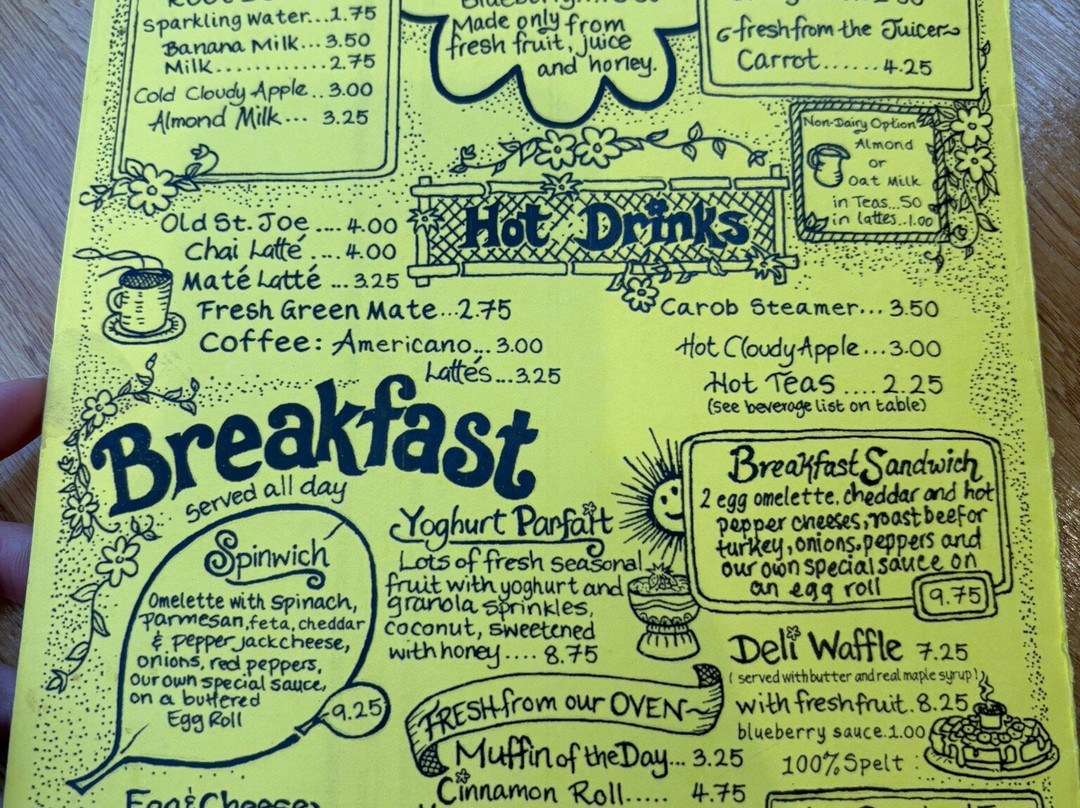 sparkling water...1.75
Banana Milk...3.50
Milk.............2.75
Cold Cloudy Apple..3.00
Almond Milk... 3.25
Made only from
fresh fruit, juice
and honey.
fresh from the Juicer
Carrot......4.25
Non-Dairy Option
Almond
or
Oat Milk
in Teas...50
in lattes..1.00
Hot Drinks
Old St. Joe ....4.00
Chai Latté ....4.00
Maté Latté ...3.25
Fresh Green Mate...2.75
Coffee: Americano...3.00
Lattés...3.25
Carob Steamer...3.50
Hot Cloudy Apple...3.00
Hot Teas ....2.25
(see beverage list on table)
Breakfast
served all day
Spinwich
Omelette with spinach,
parmesan, feta, cheddar
& pepper jack cheese,
onions, red peppers,
our own special sauce,
on a buttered
Egg Roll
9.25
Yoghurt Parfait
Lots of fresh seasonal
fruit with yoghurt and
granola sprinkles,
coconut, sweetened
with honey....8.75
Breakfast Sandwich
2 egg omelette, cheddar and hot
pepper cheeses, roast beef or
turkey, onions, peppers and
our own special sauce on
an egg roll
9.75
Deli Waffle 7.25
(served with butter and real maple syrup)
with fresh fruit.8.25
blueberry sauce.1.00
100% Spelt
FRESH from our OVEN
Muffin of the Day...3.25
Cinnamon Roll.....4.75
Egg & Cheese